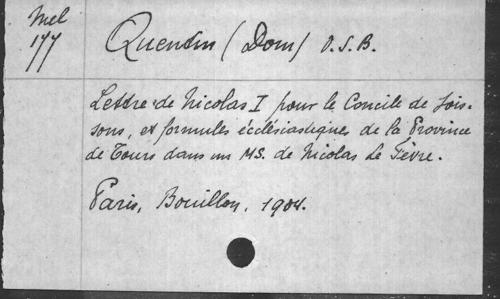 Mel
177
Quentin (Dom) O.S.B.
Lettre de Nicolas I pour le Concile de Sois-
sons, et formules écclésiastiques de la Province
de Tours dans un MS. de Nicolas Le Fèvre.
Paris, Bouillon, 1904.